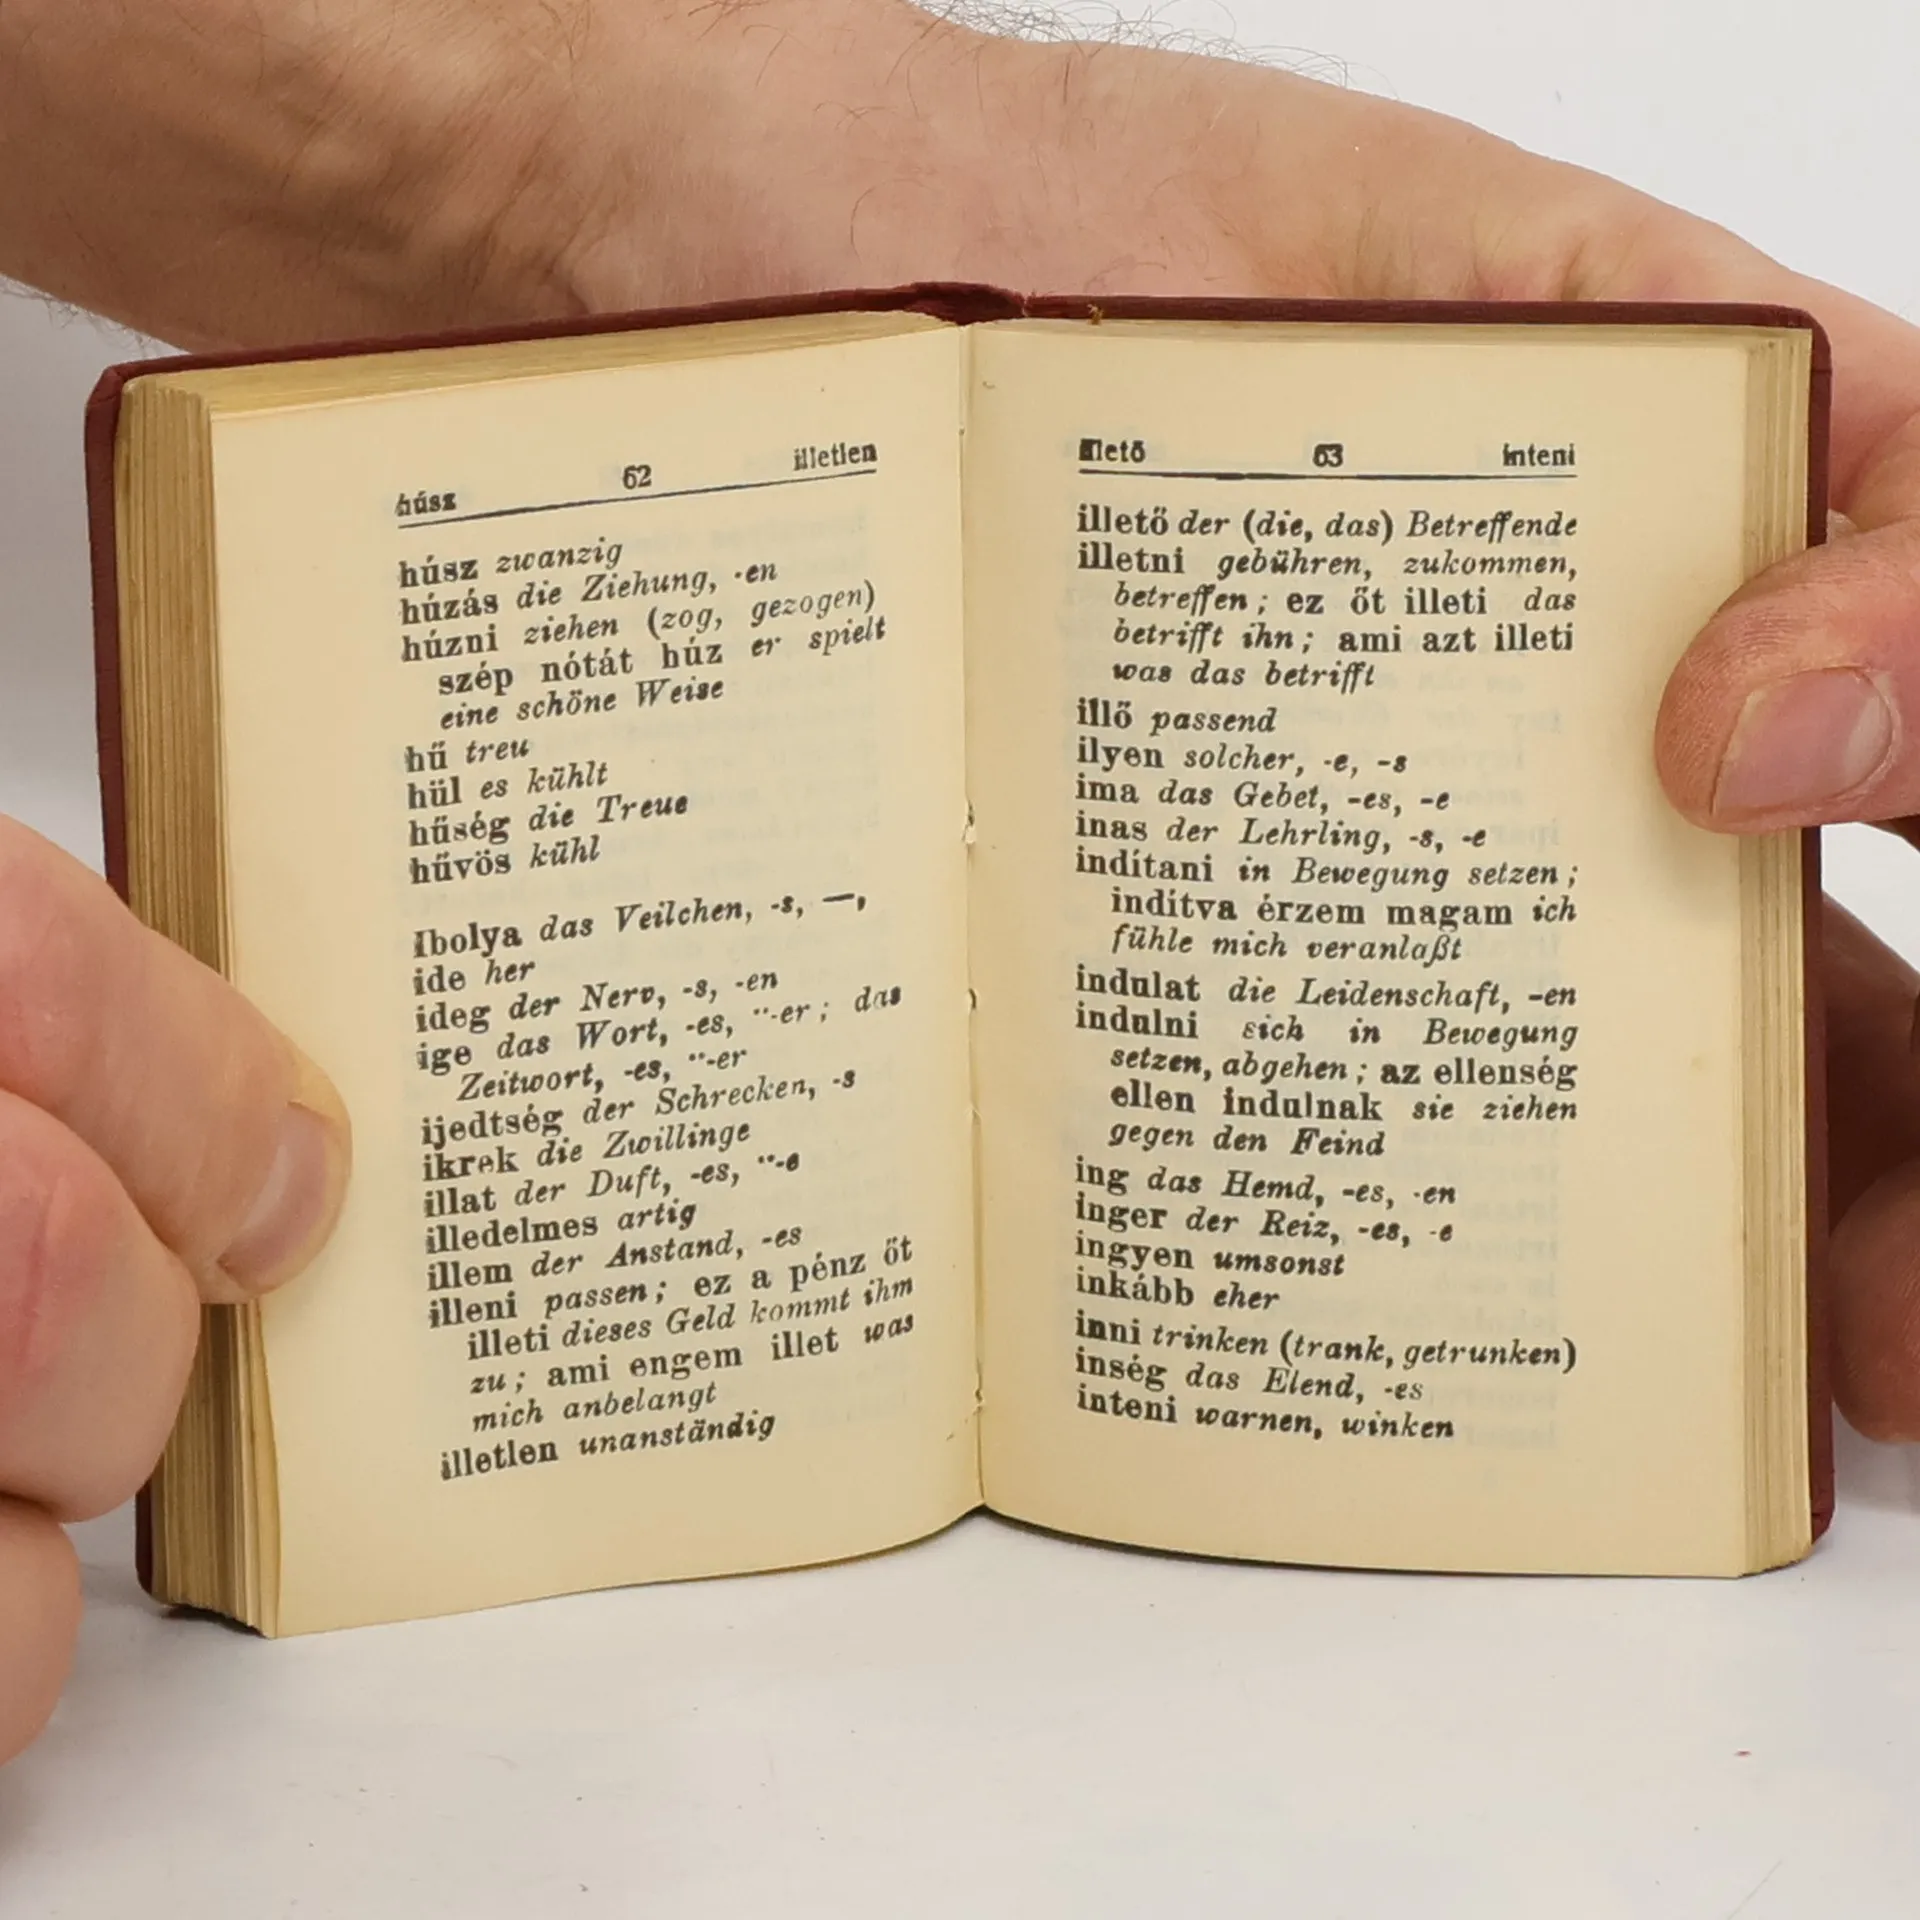 húsz 62 illetlen
húsz zwanzig
húzás die Ziehung, -en
húzni ziehen (zog, gezogen)
szép nótát húz er spielt
eine schöne Weise
hű treu
hül es kühlt
hűség die Treue
hűvös kühl
Ibolya das Veilchen, -s, —,
ide her
ideg der Nerv, -s, -en
ige das Wort, -es, ¨-er; das
Zeitwort, -es, ¨-er
ijedtség der Schrecken, -s
ikrek die Zwillinge
illat der Duft, -es, ¨-e
illedelmes artig
illem der Anstand, -es
illeni passen; ez a pénz őt
illeti dieses Geld kommt ihm
zu; ami engem illet was
mich anbelangt
illetlen unanständig
illető 63 inteni
illető der (die, das) Betreffende
illetni gebühren, zukommen,
betreffen; ez őt illeti das
betrifft ihn; ami azt illeti
was das betrifft
illő passend
ilyen solcher, -e, -s
ima das Gebet, -es, -e
inas der Lehrling, -s, -e
indítani in Bewegung setzen;
indítva érzem magam ich
fühle mich veranlaßt
indulat die Leidenschaft, -en
indulni sich in Bewegung
setzen, abgehen; az ellenség
ellen indulnak sie ziehen
gegen den Feind
ing das Hemd, -es, -en
inger der Reiz, -es, -e
ingyen umsonst
inkább eher
inni trinken (trank, getrunken)
inség das Elend, -es
inteni warnen, winken